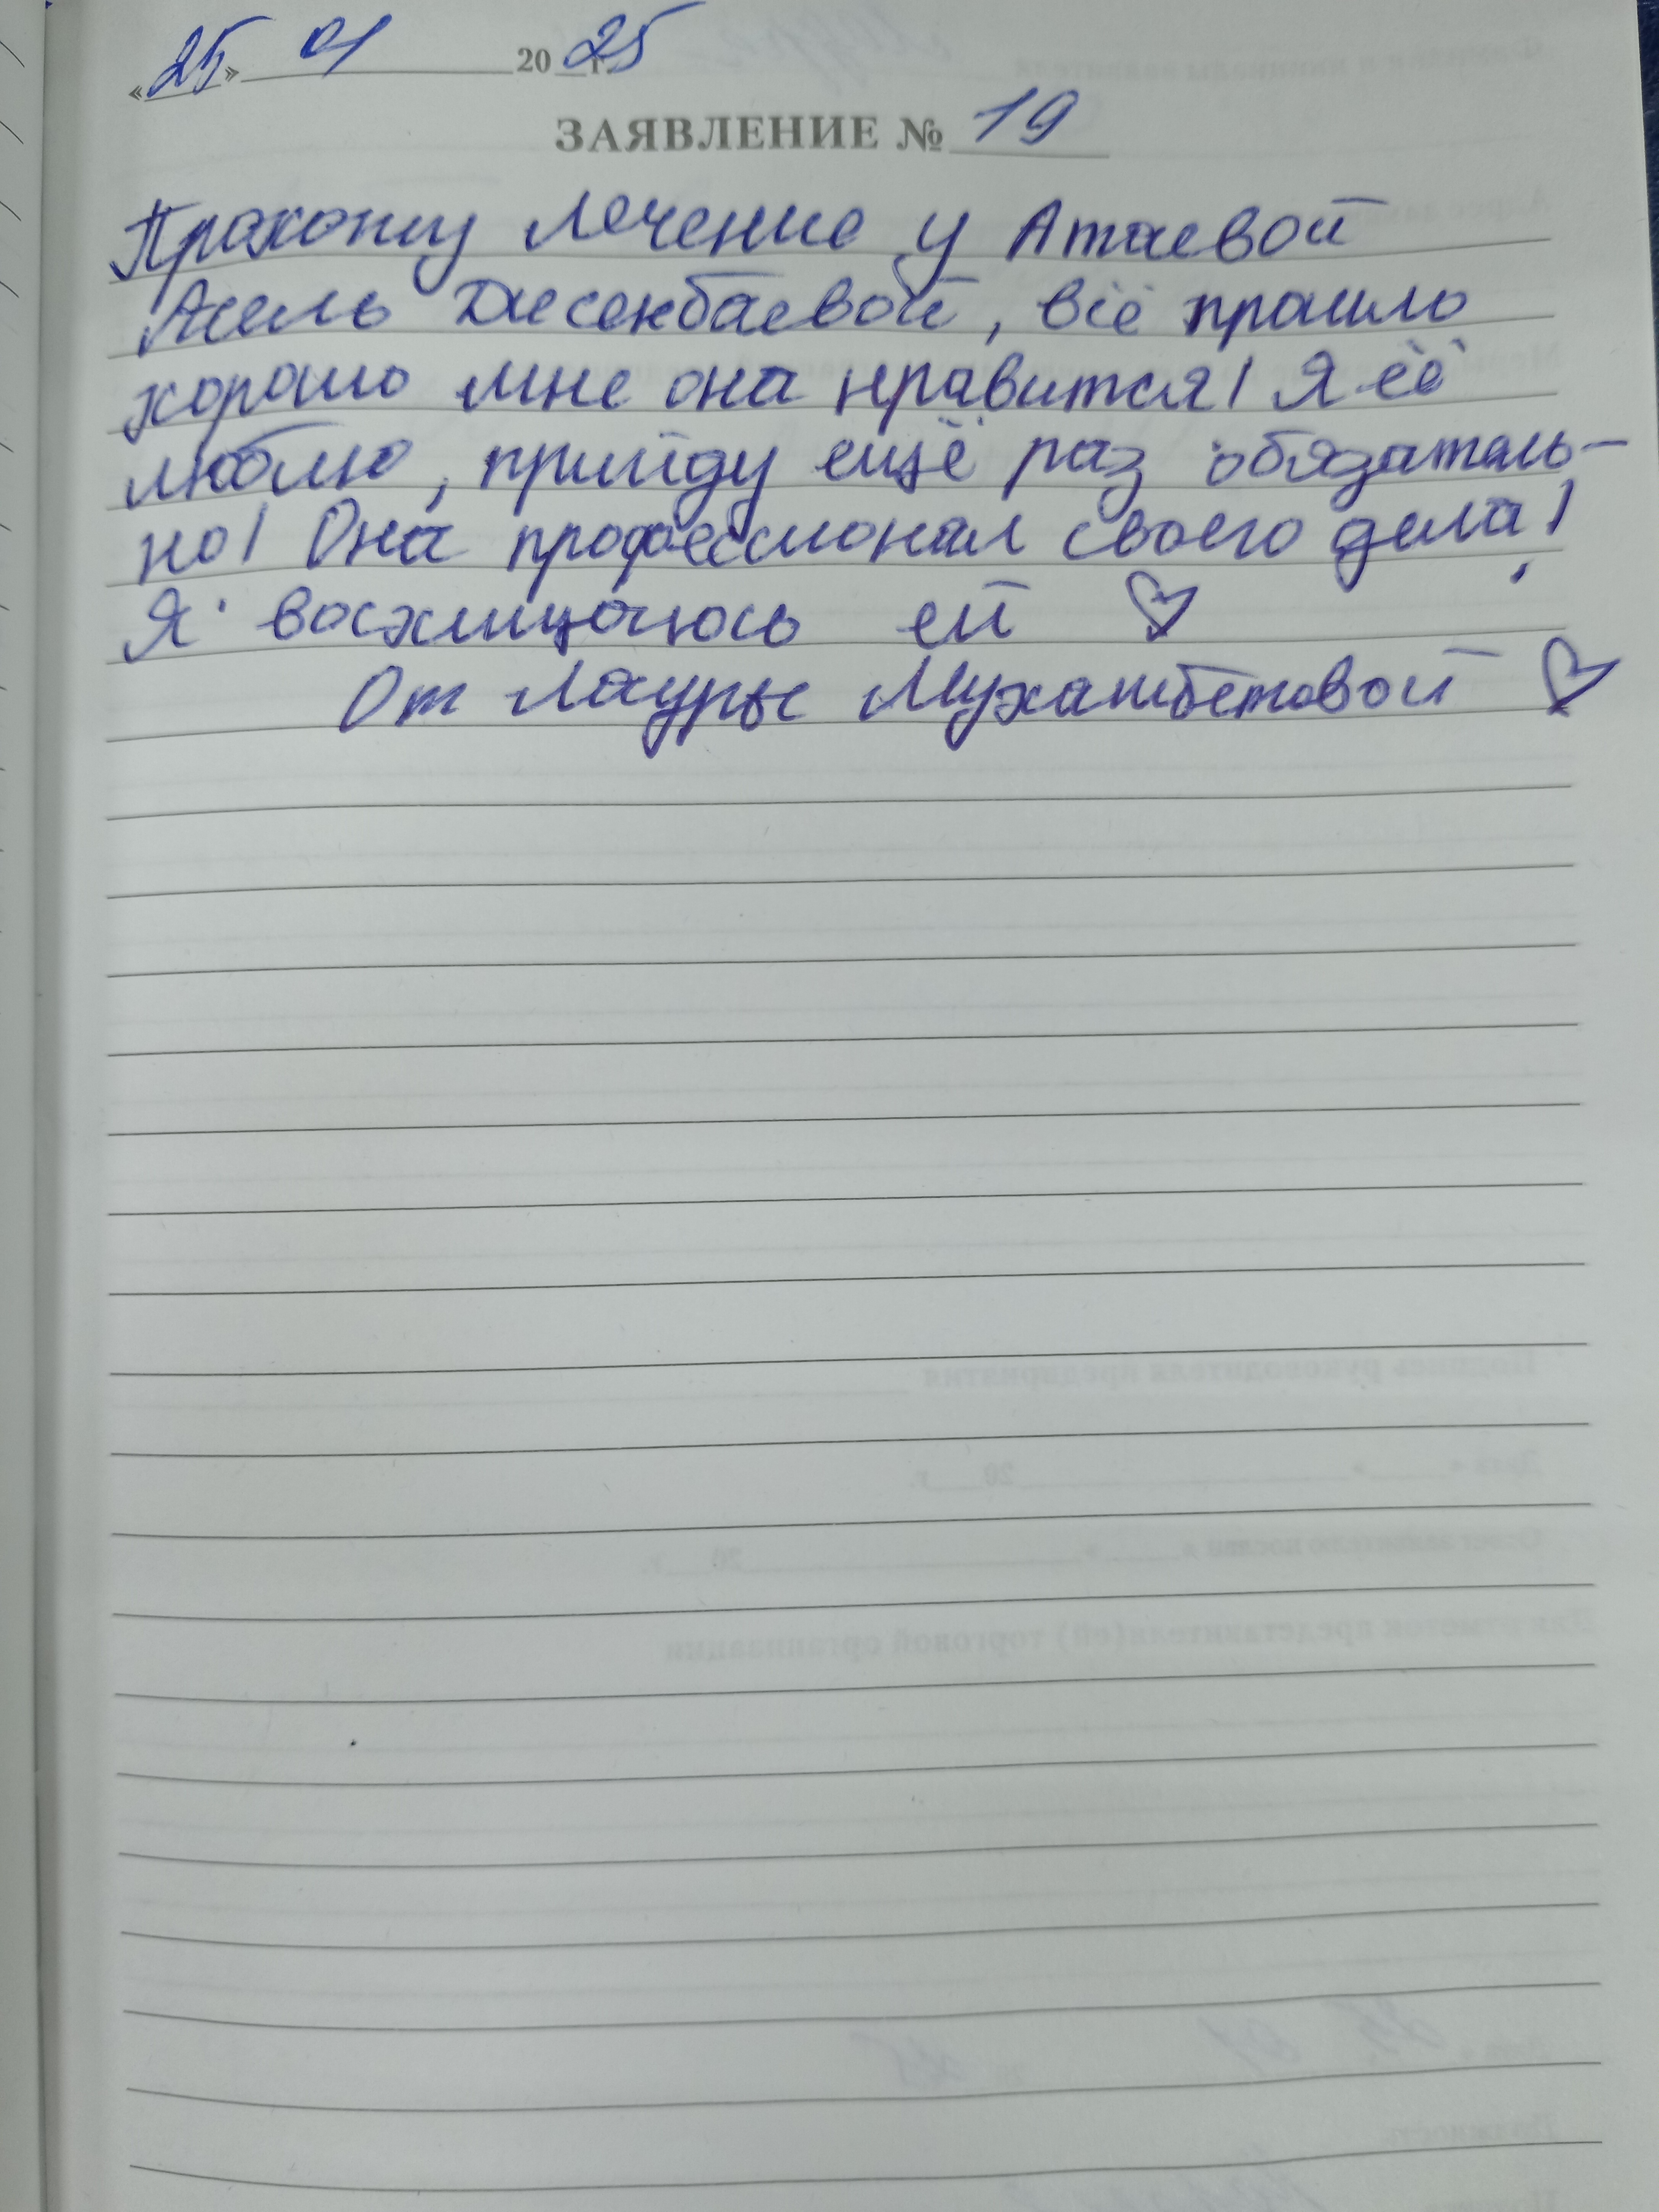 «25» 01 2025 г.
ЗАЯВЛЕНИЕ № 19
Прохожу лечение у Атаевой
Асель Дисенбаевой, всё прошло
хорошо мне она нравится! Я её
люблю, прийду ещё раз обязатель-
но! Она профессионал своего дела!
Я восхищаюсь ей ♡
От Лауры Мухамбетовой ♡